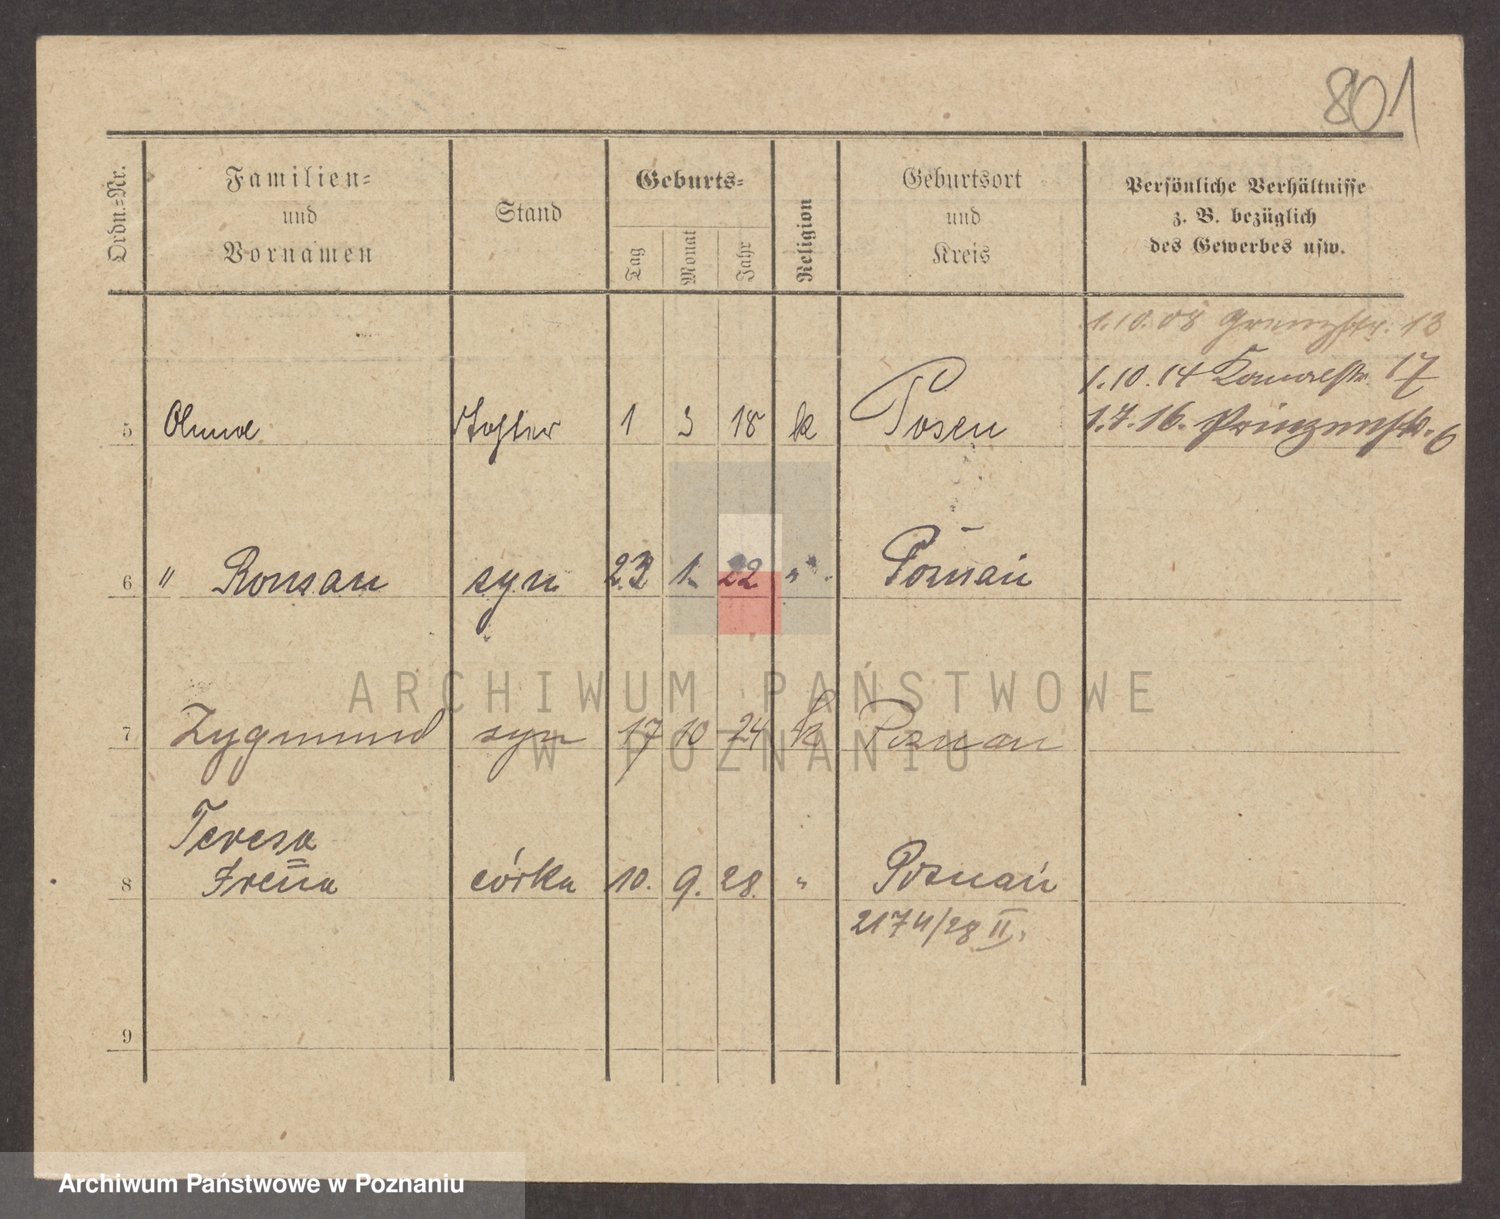 801
Ordn.-Nr.
Familien-
und
Vornamen
Stand
Geburts-
Tag
Monat
Jahr
Religion
Geburtsort
und
Kreis
Persönliche Verhältnisse
z. B. bezüglich
des Gewerbes usw.
1.10.08 Grenzstr. 13
1.10.14 Kanalstr. 17
5 Tochter 1 3 18 k Posen 1.7.16. Prinzenstr. 6
6 " Roman syn 23 1. 22 " Poznań
ARCHIWUM PAŃSTWOWE
7 Zygmund syn 17 10 24 k Poznań
W POZNANIU
Teresa
8 Irena córka 10. 9. 28. " Poznań
2174/28 II.
9
Archiwum Państwowe w Poznaniu